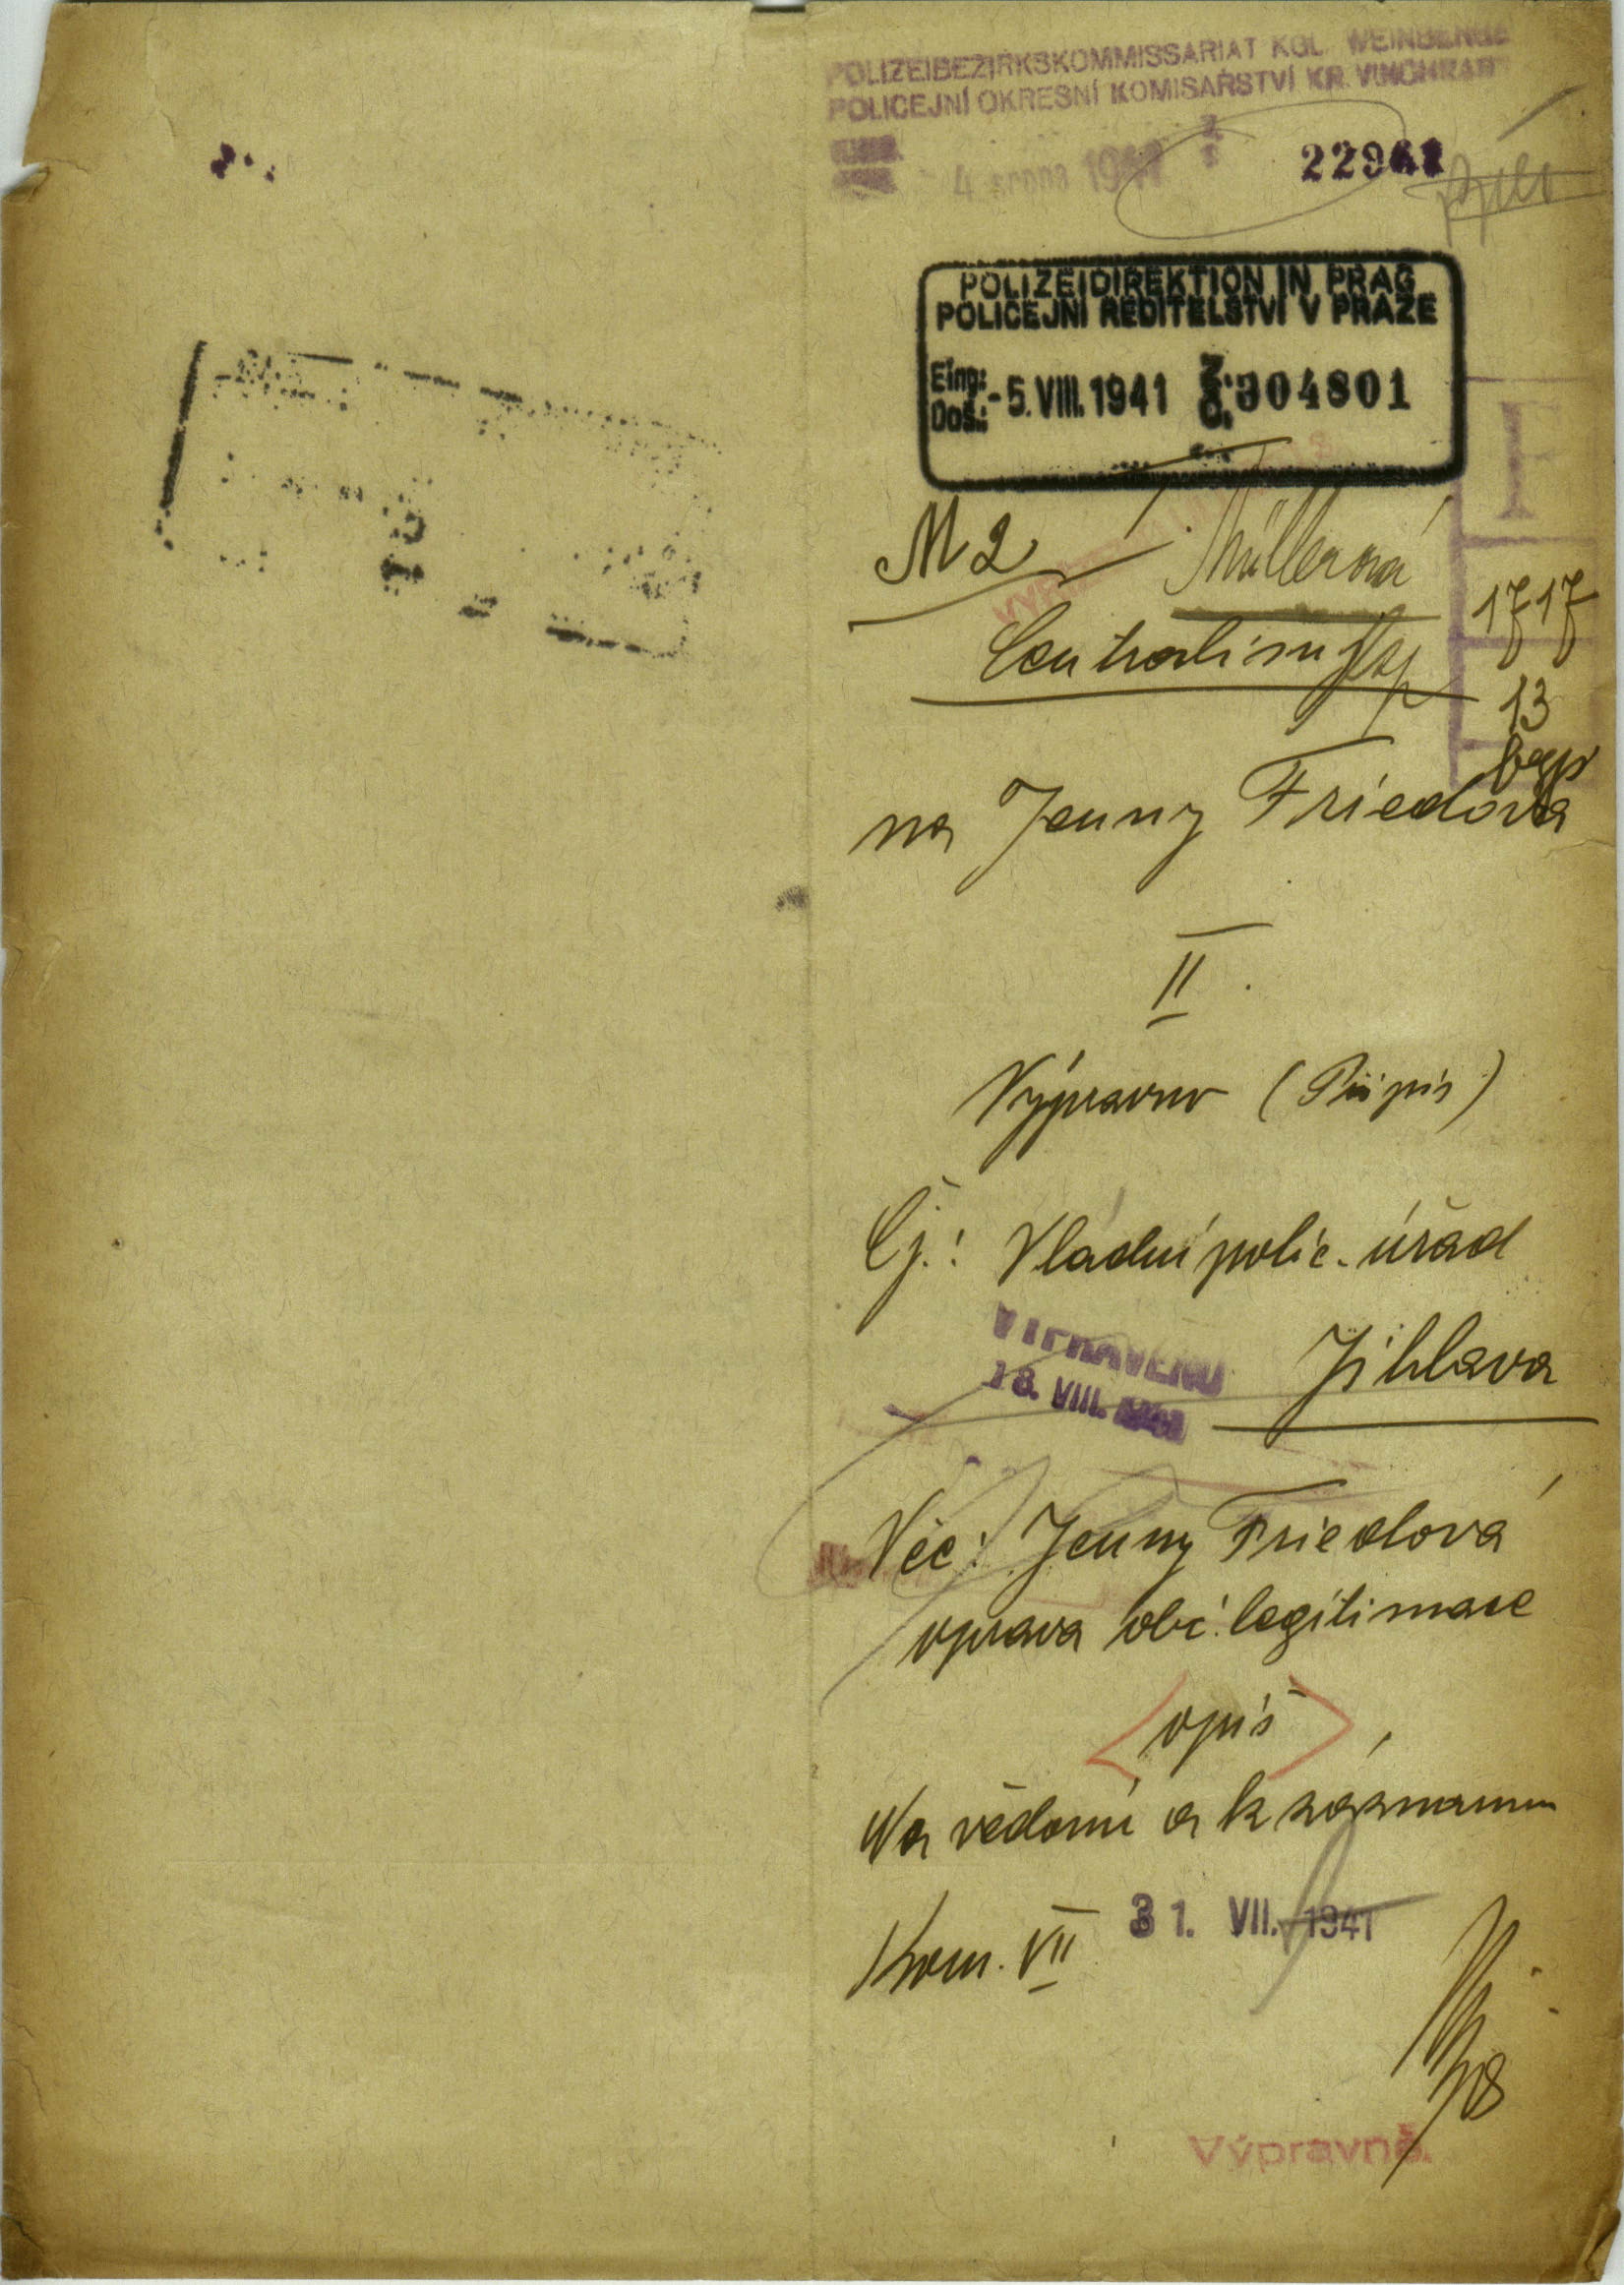 POLIZEIBEZIRKSKOMMISSARIAT KGL. WEINBERGE
POLICEJNÍ OKRESNÍ KOMISAŘSTVÍ KR. VINOHRADY
4 srpna 1941
22961
POLIZEIDIREKTION IN PRAG
POLICEJNÍ ŘEDITELSTVÍ V PRAZE
Eing:
Doš.: -5. VIII. 1941 Z. Č. 304801
F
M 2 Müllerová
1717
13
na Jenny Friedová
II.
Výpravně (Přípis)
Čj.: Vládní polic. úřad
Jihlava
VYPRAVENO
18. VIII. 1941
Věc: Jenny Friedová
oprava obč. legitimace
opis
Na vědomí a k záznamu
Kom. VII 31. VII. 1941
Výpravně.